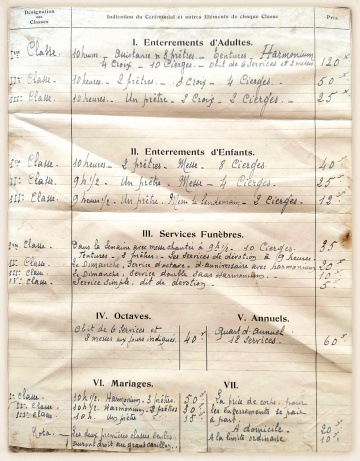 Désignation des Classes
Indication du Cérémonial et autres Eléments de chaque Classe
Prix
I. Enterrements d'Adultes.
Ire Classe. 10 heures. Assistance n 3 prêtres - Tentures, Harmonium
4 Croix - 10 Cierges - obit de 6 services et 3 messes 120 »
IIe Classe. 10 heures. - 2 prêtres. - 3 Croix - 4 Cierges. - 50 »
IIIe Classe. 10 heures. - Un prêtre - 2 Croix - 2 Cierges. - 25 »
II. Enterrements d'Enfants.
Ire Classe. 10 heures - 2 prêtres. Messe - 8 Cierges. 40 »
IIe Classe. 9 h ½ - Un prêtre - Messe - 4 Cierges. 25 »
IIIe Classe. 9 heures ½ - Un prêtre. Messe le lendemain - 2 Cierges - 12 »
III. Services Funèbres.
Ire Classe. Dans la semaine avec messe chantée à 9 h ¼. - 10 Cierges. 35
Tentures - 3 prêtres. - Les Services de dévotion à 9 heures.
IIe Classe. Le Dimanche, Service d'octave, d'anniversaire avec harmonium 20 »
IIIe Classe. Le Dimanche, Service double sans Harmonium. 10 »
IVe Classe. Service Simple, dit de dévotion. 5 »
IV. Octaves.
Obit de 6 Services et
3 messes aux jours indiqués. 40 »
V. Annuels.
Quart d'annuel
12 Services. 60 »
VI. Mariages.
Ire Classe. 10 h ½. Harmonium. 3 prêtres. 50 »
IIe Classe. 10 h ½. Harmonium. 3 prêtres 30 »
IIIe Classe. 10 h. Un prêtre 15 »
Nota. - Les deux premières classes
auront droit au grand carillon.
VII.
La prise de corps, pour
les enterrements se paie
à part.
A domicile. 20 »
A la limite ordinaire 10 »